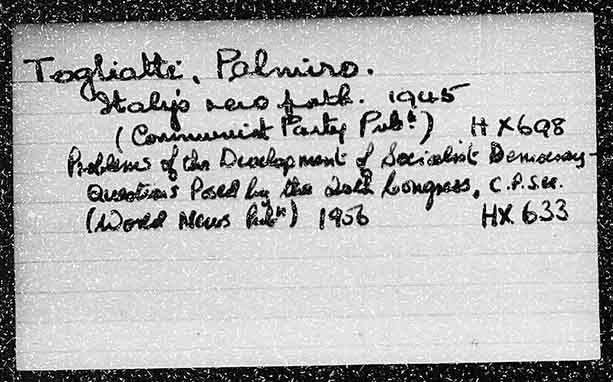 Togliatti, Palmiro.
Italy's new path. 1945
(Communist Party Pub.n) HX698
Problems of the Development of Socialist Democracy -
Questions Posed by the 20th Congress, C.P.S.U.
(World News Pub.n) 1956 HX633